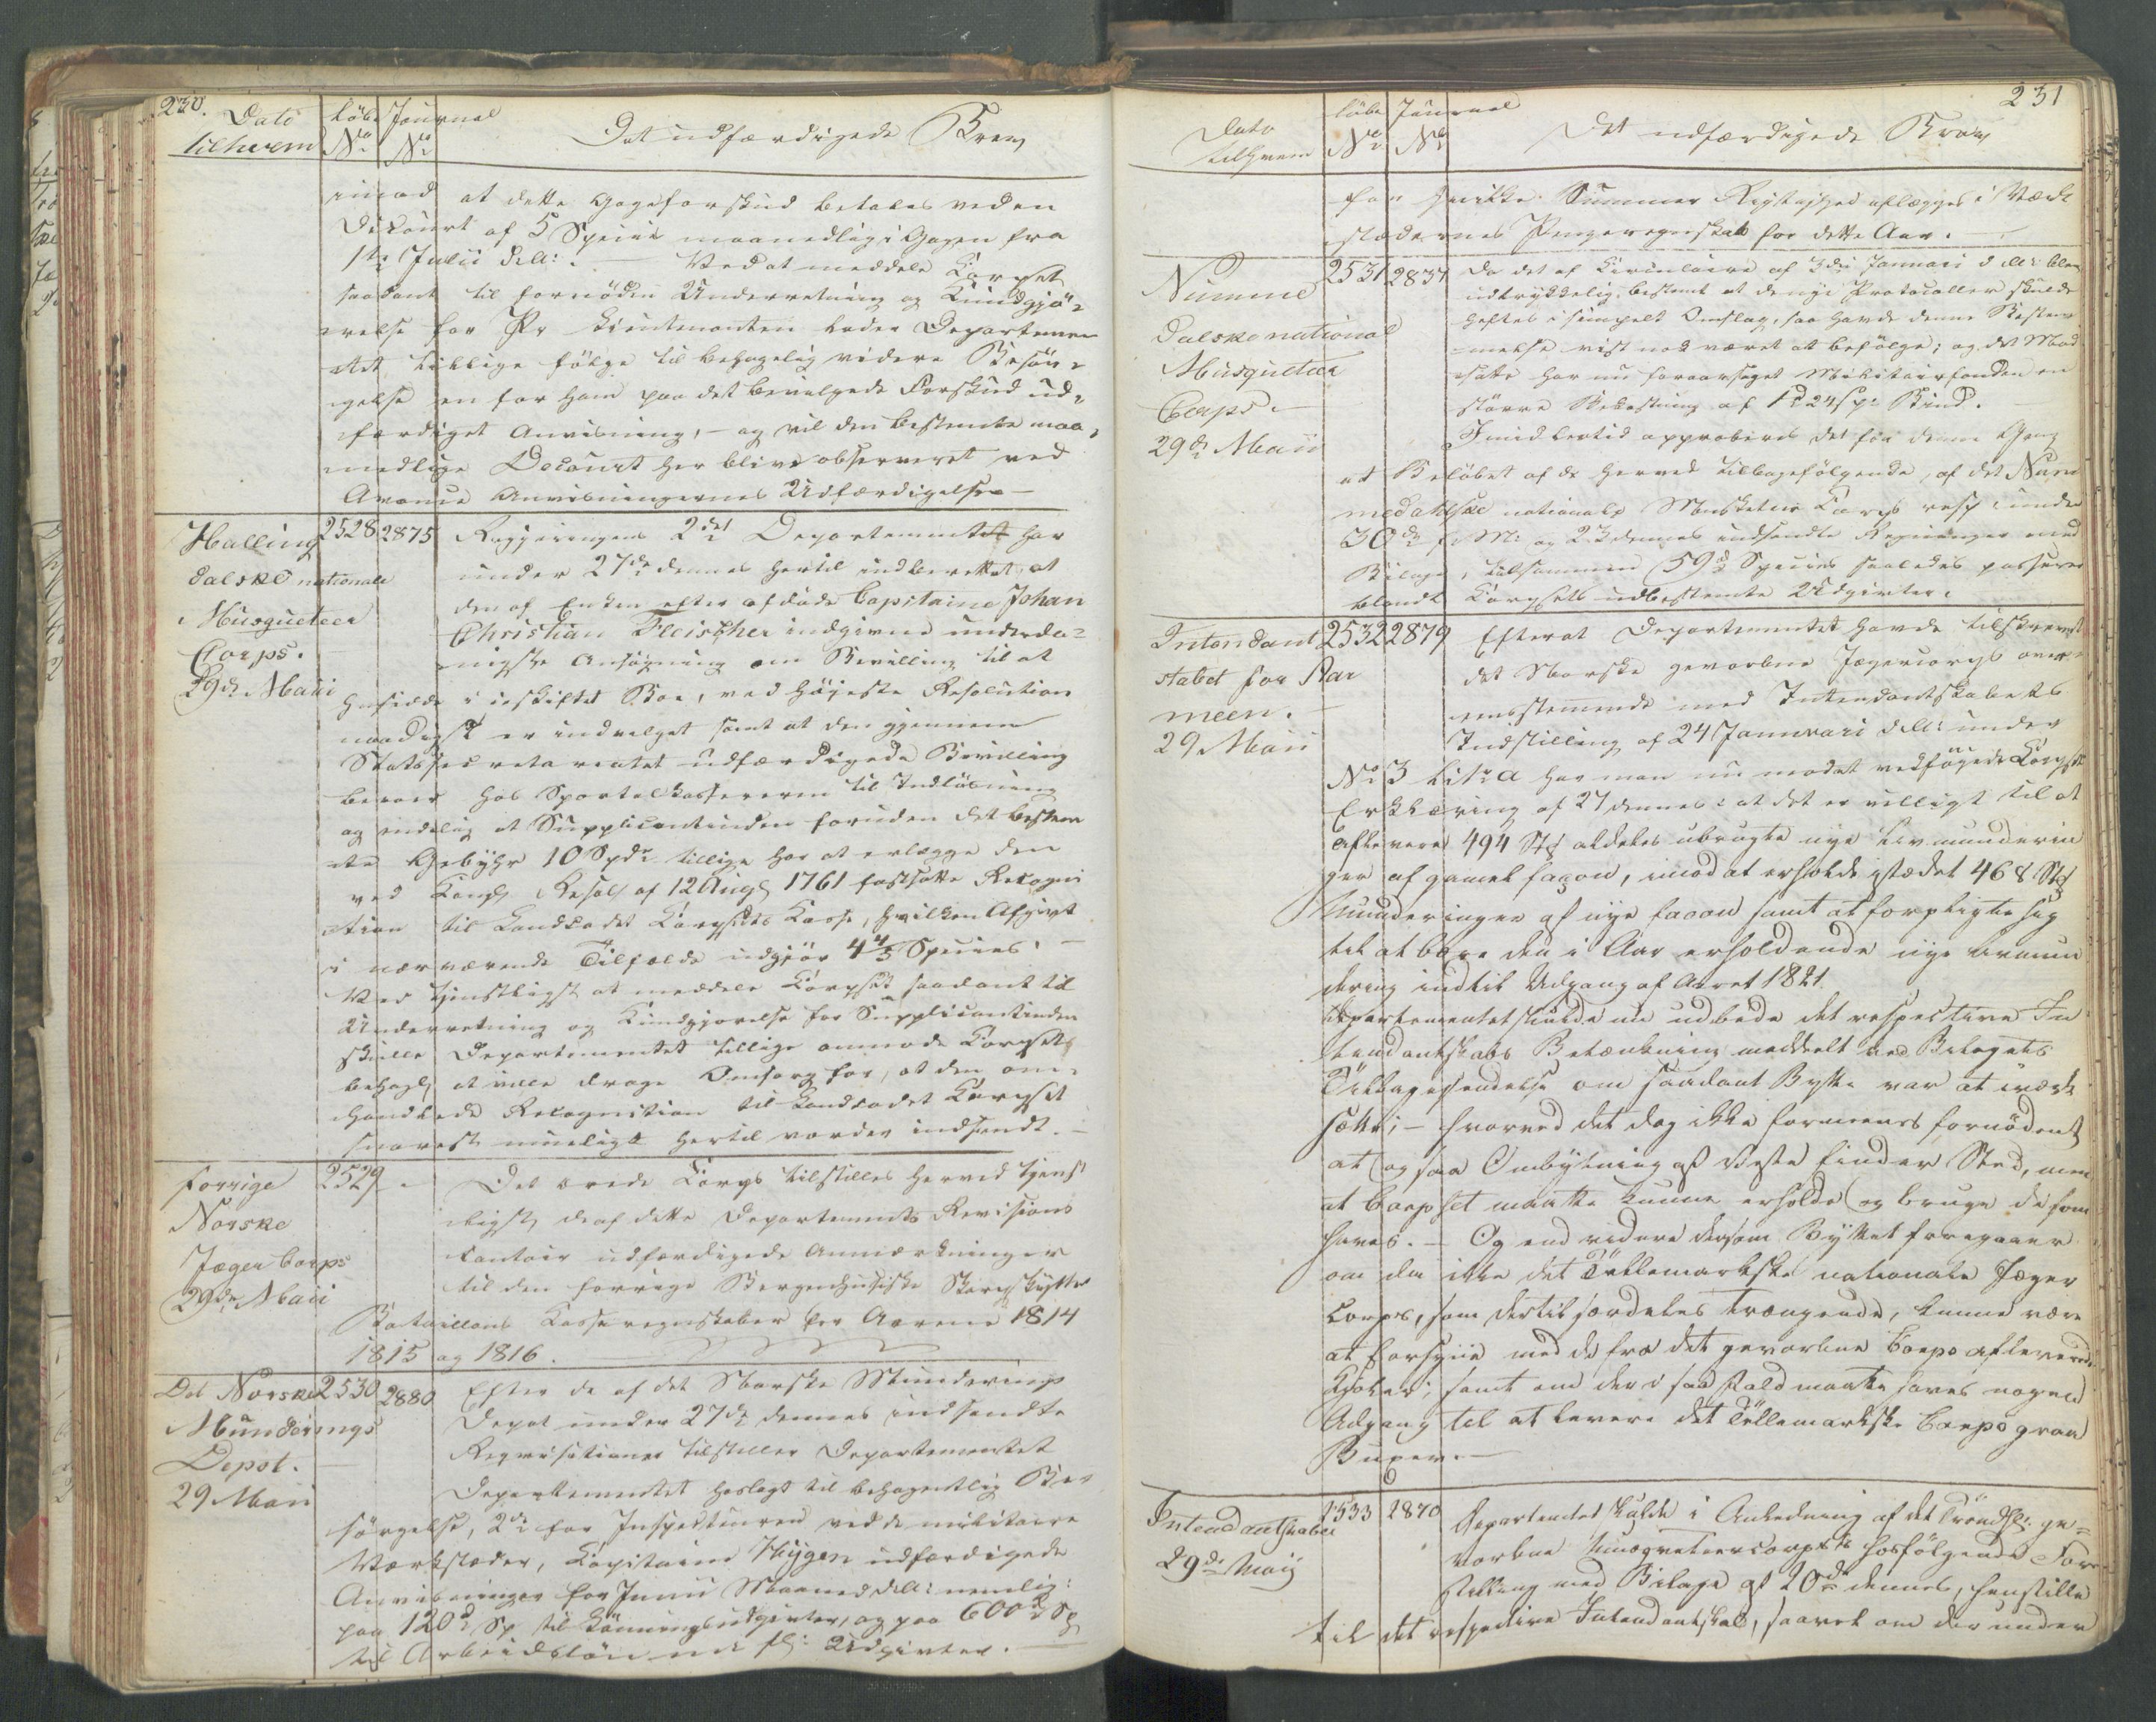 230.
Dato
tilhvem
Løbe
No
Journal
No
Det udfærdigede Brev
imod at dette Gageforskud betales ved en
Decourt af 5 Species maanedlig i Gagen fra
1ste Julii d. A:. Ved at meddele Corpset
saadant til fornöden Underretning og Kundgjö-
relse for Pr Lieutnanten lader Departemen
tet tillige fölge til behagelig videre Besör-
gelse en for ham paa det bevilgede Forskud ud-
færdiget Anvisning, – og vil den bestemte maa-
nedlige Decourt her blive observeret ved
Avance Anvisningernes Udfærdigelse –
Halling
dalske nationale
Musqueteer
Corps.
29de Maii
2528
2875
Regjeringens 2det Departementet har
under 27de dennes hertil indberettet, at
den af Enken efter afdöde Capitaine Johan
Christian Fleischer indgivne underda-
nigste Ansögning om Bevilling til at
hensidde i uskiftet Boe, ved höjeste Resolution
naadigst er indvilget samt at den gjennem
Statssecretariatet udfærdigede Bevilling
beroer hos Sportelkassereren til Indlösning
og endelig at Supplicantinden foruden det bestem
te Gebyhr 10 Spdr tillige har at erlægge den
ved Kongl Resol af 12 Augl 1761 fastsatte Recogni
tion til Landcadet Corpsets Casse, hvilken Afgivt
i nærværende Tilfælde udgjör 4 4/5 Species. –
Ved tjenstligst at meddele Corpset saadant til
Underretning og Kundgjörelse for Supplicantinden
skulle Departementet tillige anmode Corpset
behagl at ville drage Omsorg for, at den om-
handlede Recognition til Landcadet Corpset
snarest mueligt hertil vorder indsendt. –
forrige
Norske
Jæger Corps
29de Maii
2529
Det ærede Corps tilstilles herved tjenst
ligst, de af dette Departements Revisions
Contoir udfærdigede Anmærkninger
til den forrige Bergenhusiske Skarpskytter
Bataillons Casseregnskaber for Aarene 1814
1815 og 1816.
Det Norske
Munderings
Depot.
29 Maii
2530
2880
Efter de af det Norske Munderings
Depot under 27de dennes indsendte
Reqvisitioner tilstiller Departementet
Departementet hoslagt til behagentlig Be
sörgelse, 2de for Inspecteuren ved de militaire
Værksteder, Capitaine Thygen udfærdigede
Anvisninger for Junii Maaned d. A: nemlig:
paa 120 d Sp. til Lönningsudgivter, og paa 600 d Sp
til Arbeidslön m. fl: Udgivter. –
231
Dato
tilhvem
Löbe
No
Journal
No
Det udfærdigede Brev
for hvilke Summer Rigtighed aflægges i Værk
stædernes Pengeregnskab for dette Aar. –
Numme
dalske national
Musqueteer
Corps.
29de Maii
2531
2837
Da det af Circulaire af 3die Januari d. A: blev
udtrykkelig bestemt at de nye Protocoller skulde
heftes i simpelt Omslag, saa havde denne Bestem
melse vist nok været at befölge; og det Mod
satte har nu foraarsaget Militairfonden en
större Bekostning af 1 d 24 s pr Bind.
Imidlertid approberes det for denne Gang
at Beløbet af de herved tilbagefølgende, af det Num
medalske nationale Musketeer Corps resp: under
30de f. M: og 23 dennes indsendte Regninger med
Bilage, tilsammen 59 d Species saaledes passerer
blandt Corpsets ubestemte Udgivter.
Intendant
stabet for Ar
meen.
29 Maii
2532
2879
Efterat Departementet havde tilskrevet
det Norske gevorbne Jægercorps over
eensstemmende med Intendantskabets
Indstilling af 24 Januari d. A: under
No 3 Litr a har man nu modtaget vedföjede Corpsets
Erklæring af 27 dennes: at det er villigt til at
aflevere 494 Stk aldeles ubrugte nye Livmunderin
ger af gamel façon, imod at erholde istædet 468 Stk
Munderinger af nye facon samt at forpligte sig
til at bære den i Aar erholdende nye Livmun
dering indtil Udgang af Aaret 1821.
Departementet skulde nu udbede det respective In
tendantskabs Betænkning meddelt ved Bilagets
Tilbagesendelse om saadant Bytte var at iværk
sætte; – hvorved det dog ikke formeenes fornödent
at ogsaa Ombytning af Veste finder Sted, men
at Corpset maatte kunne erholde og bruge de som
haves. – Og end videre dersom Byttet foregaaer
om da ikke det Tellemarkske nationale Jæger
Corps, som dertil særdeles trængende, kunne være
at forsyne med de fra det gevorbne Corps afleverede
Kjoler; samt om der i saa Fald maatte haves nogen
Adgang til at levere det Tellemarkske Corps graa
Buxer. –
Intendantskabet
29de Maij
2533
2870
Departemtet skulde i Anledning af det Trondhj: ge-
vorbne Musqveteercorpsets hosfölgende Fore
stilling med Bilage af 20de dennes, henstille
til det respective Intendantskab, saavel om der under